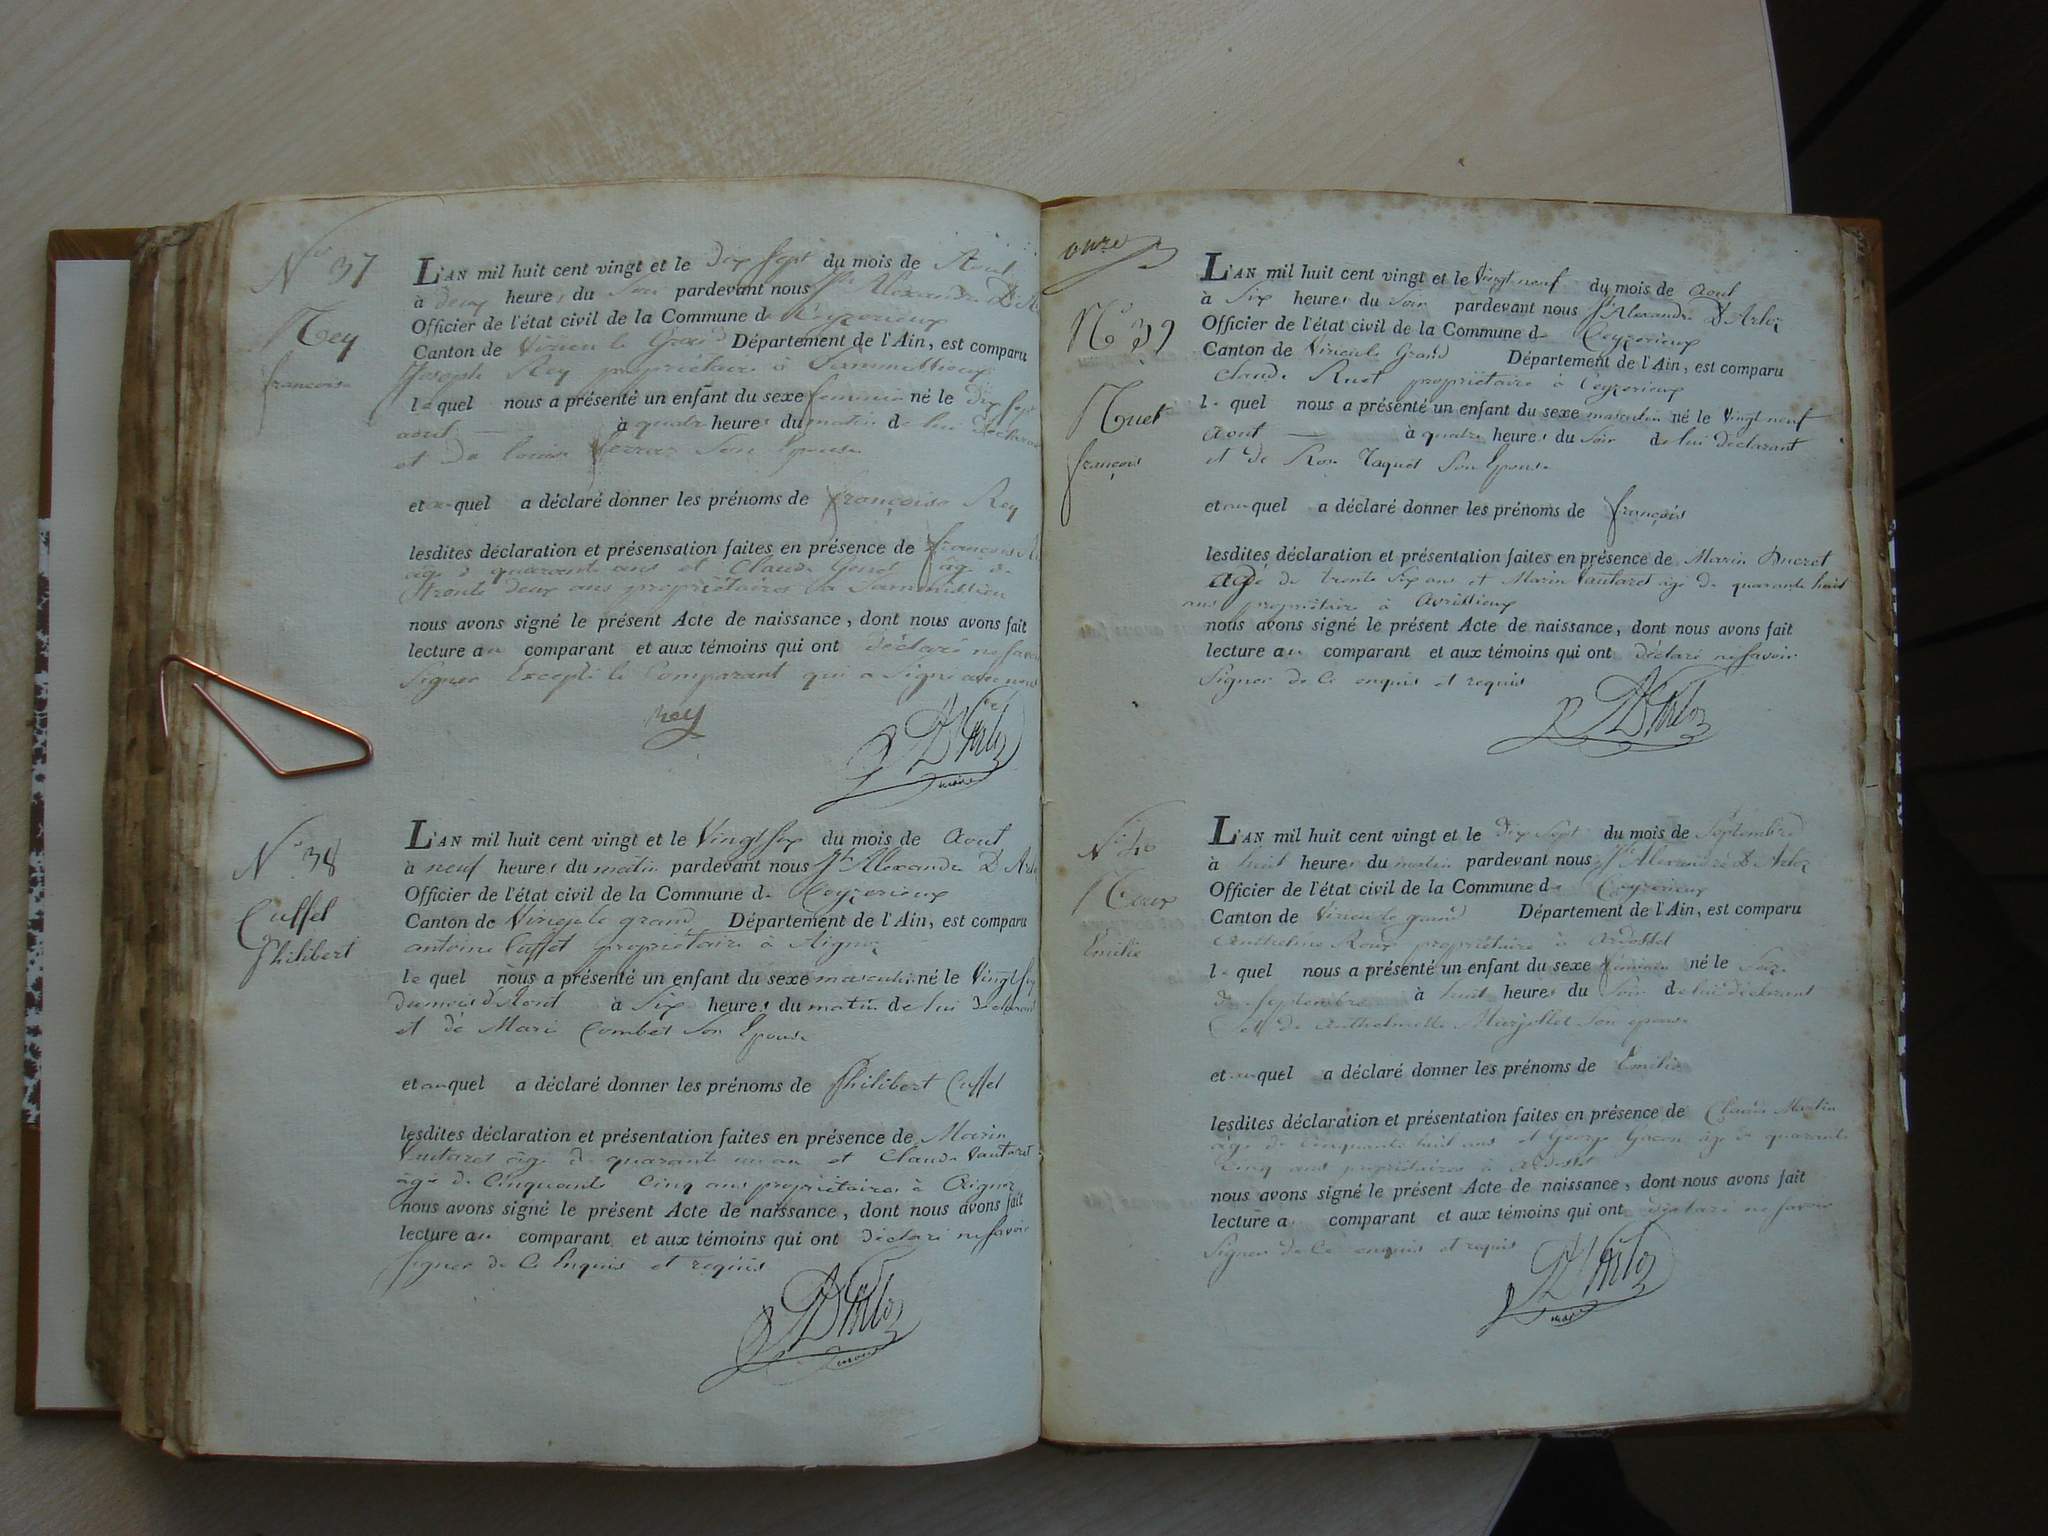 N° 37
Rey
françoise
L'AN mil huit cent vingt et le dix sept du mois de Aout
à deux heures du Soir pardevant nous Alexandre D'A
Officier de l'état civil de la Commune de Ceyzerieux
Canton de Virieu le Grand Département de l'Ain, est comparu
Joseph Rey propriétaire à
lequel nous a présenté un enfant du sexe feminin né le dix sept
aout à quatre heures du matin de lui déclarant
et de louise Son Epouse
et auquel a déclaré donner les prénoms de françoise Rey
lesdites déclaration et présensation faites en présence de françois
âgé de quarante ans et Claude Genet âgé de
trente deux ans propriétaires à
nous avons signé le présent Acte de naissance, dont nous avons fait
lecture au comparant et aux témoins qui ont déclaré ne savoir
Signer Excepté le Comparant qui a Signé avec nous
Rey
D'Arloz
maire
N° 38
Cuffet
Philibert
L'AN mil huit cent vingt et le Vingt six du mois de Aout
à neuf heures du matin pardevant nous Alexandre D'Arlo
Officier de l'état civil de la Commune de Ceyzerieux
Canton de Virieu le grand Département de l'Ain, est comparu
antoine Cuffet propriétaire à Aignoz
lequel nous a présenté un enfant du sexe masculin né le Vingt six
du mois d'Aout à Six heures du matin de lui déclarant
et de Marie Combet Son Epouse
et auquel a déclaré donner les prénoms de Philibert Cuffet
lesdites déclaration et présentation faites en présence de Marin
Vautaret âgé de quarante un an et Claude Vautaret
âgé de Cinquante Cinq ans propriétaires à Aignoz
nous avons signé le présent Acte de naissance, dont nous avons fait
lecture au comparant et aux témoins qui ont déclaré ne savoir
Signer de Ce Enquis et requis
D'Arloz
maire
onze
N° 39
Ruet
françois
L'AN mil huit cent vingt et le Vingt neuf du mois de Aout
à Six heures du Soir pardevant nous Alexandre D'Arloz
Officier de l'état civil de la Commune de Ceyzerieux
Canton de Virieu le Grand Département de l'Ain, est comparu
Claude Ruet propriétaire à Ceyzerieux
lequel nous a présenté un enfant du sexe masculin né le Vingt neuf
Aout à quatre heures du Soir de lui déclarant
et de Rose Taquet Son Epouse
et auquel a déclaré donner les prénoms de françois
lesdites déclaration et présentation faites en présence de Marin Ducret
agé de trente Six ans et Marin Vautaret âgé de quarante huit
ans propriétaire à Avrissieux
nous avons signé le présent Acte de naissance, dont nous avons fait
lecture au comparant et aux témoins qui ont déclaré ne savoir
Signer de Ce enquis et requis
D'Arloz
N° 40
Roux
Emilie
L'AN mil huit cent vingt et le dix Sept du mois de Septembre
à huit heures du matin pardevant nous Alexandre D'Arloz
Officier de l'état civil de la Commune de Ceyzerieux
Canton de Virieu le grand Département de l'Ain, est comparu
Anthelme Roux propriétaire à Ardosset
lequel nous a présenté un enfant du sexe féminin né le Seize
de Septembre à huit heures du Soir de lui déclarant
et de Anthelmette Marjollet Son epouse
et auquel a déclaré donner les prénoms de Emilie
lesdites déclaration et présentation faites en présence de Claude Martin
âgé de Cinquante huit ans et George âgé de quarante
Cinq ans propriétaires à Ardosset
nous avons signé le présent Acte de naissance, dont nous avons fait
lecture au comparant et aux témoins qui ont déclaré ne savoir
Signer de Ce enquis et requis
D'Arloz
maire